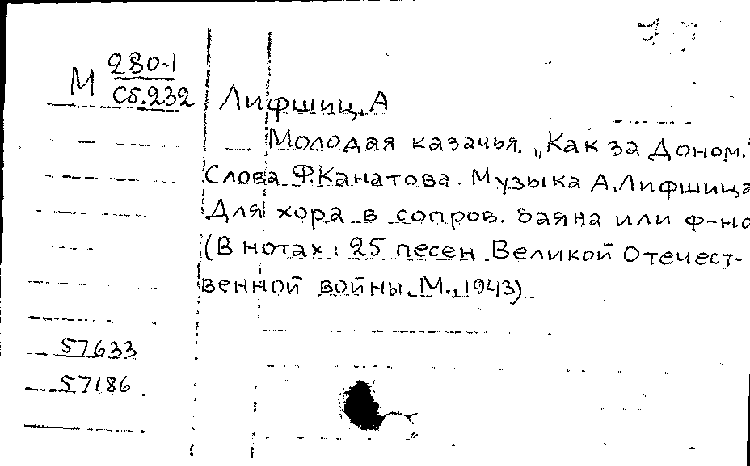 М 280-1
Сб.232
Лифшиц, А
Молодая казачья. „Как за Доном."
Слова Ф.Канатова. Музыка А.Лифшица
Для хора в сопров. баяна или ф-но
(В нотах: 25 песен Великой Отечест-
венной войны. М., 1943)
57633
57186